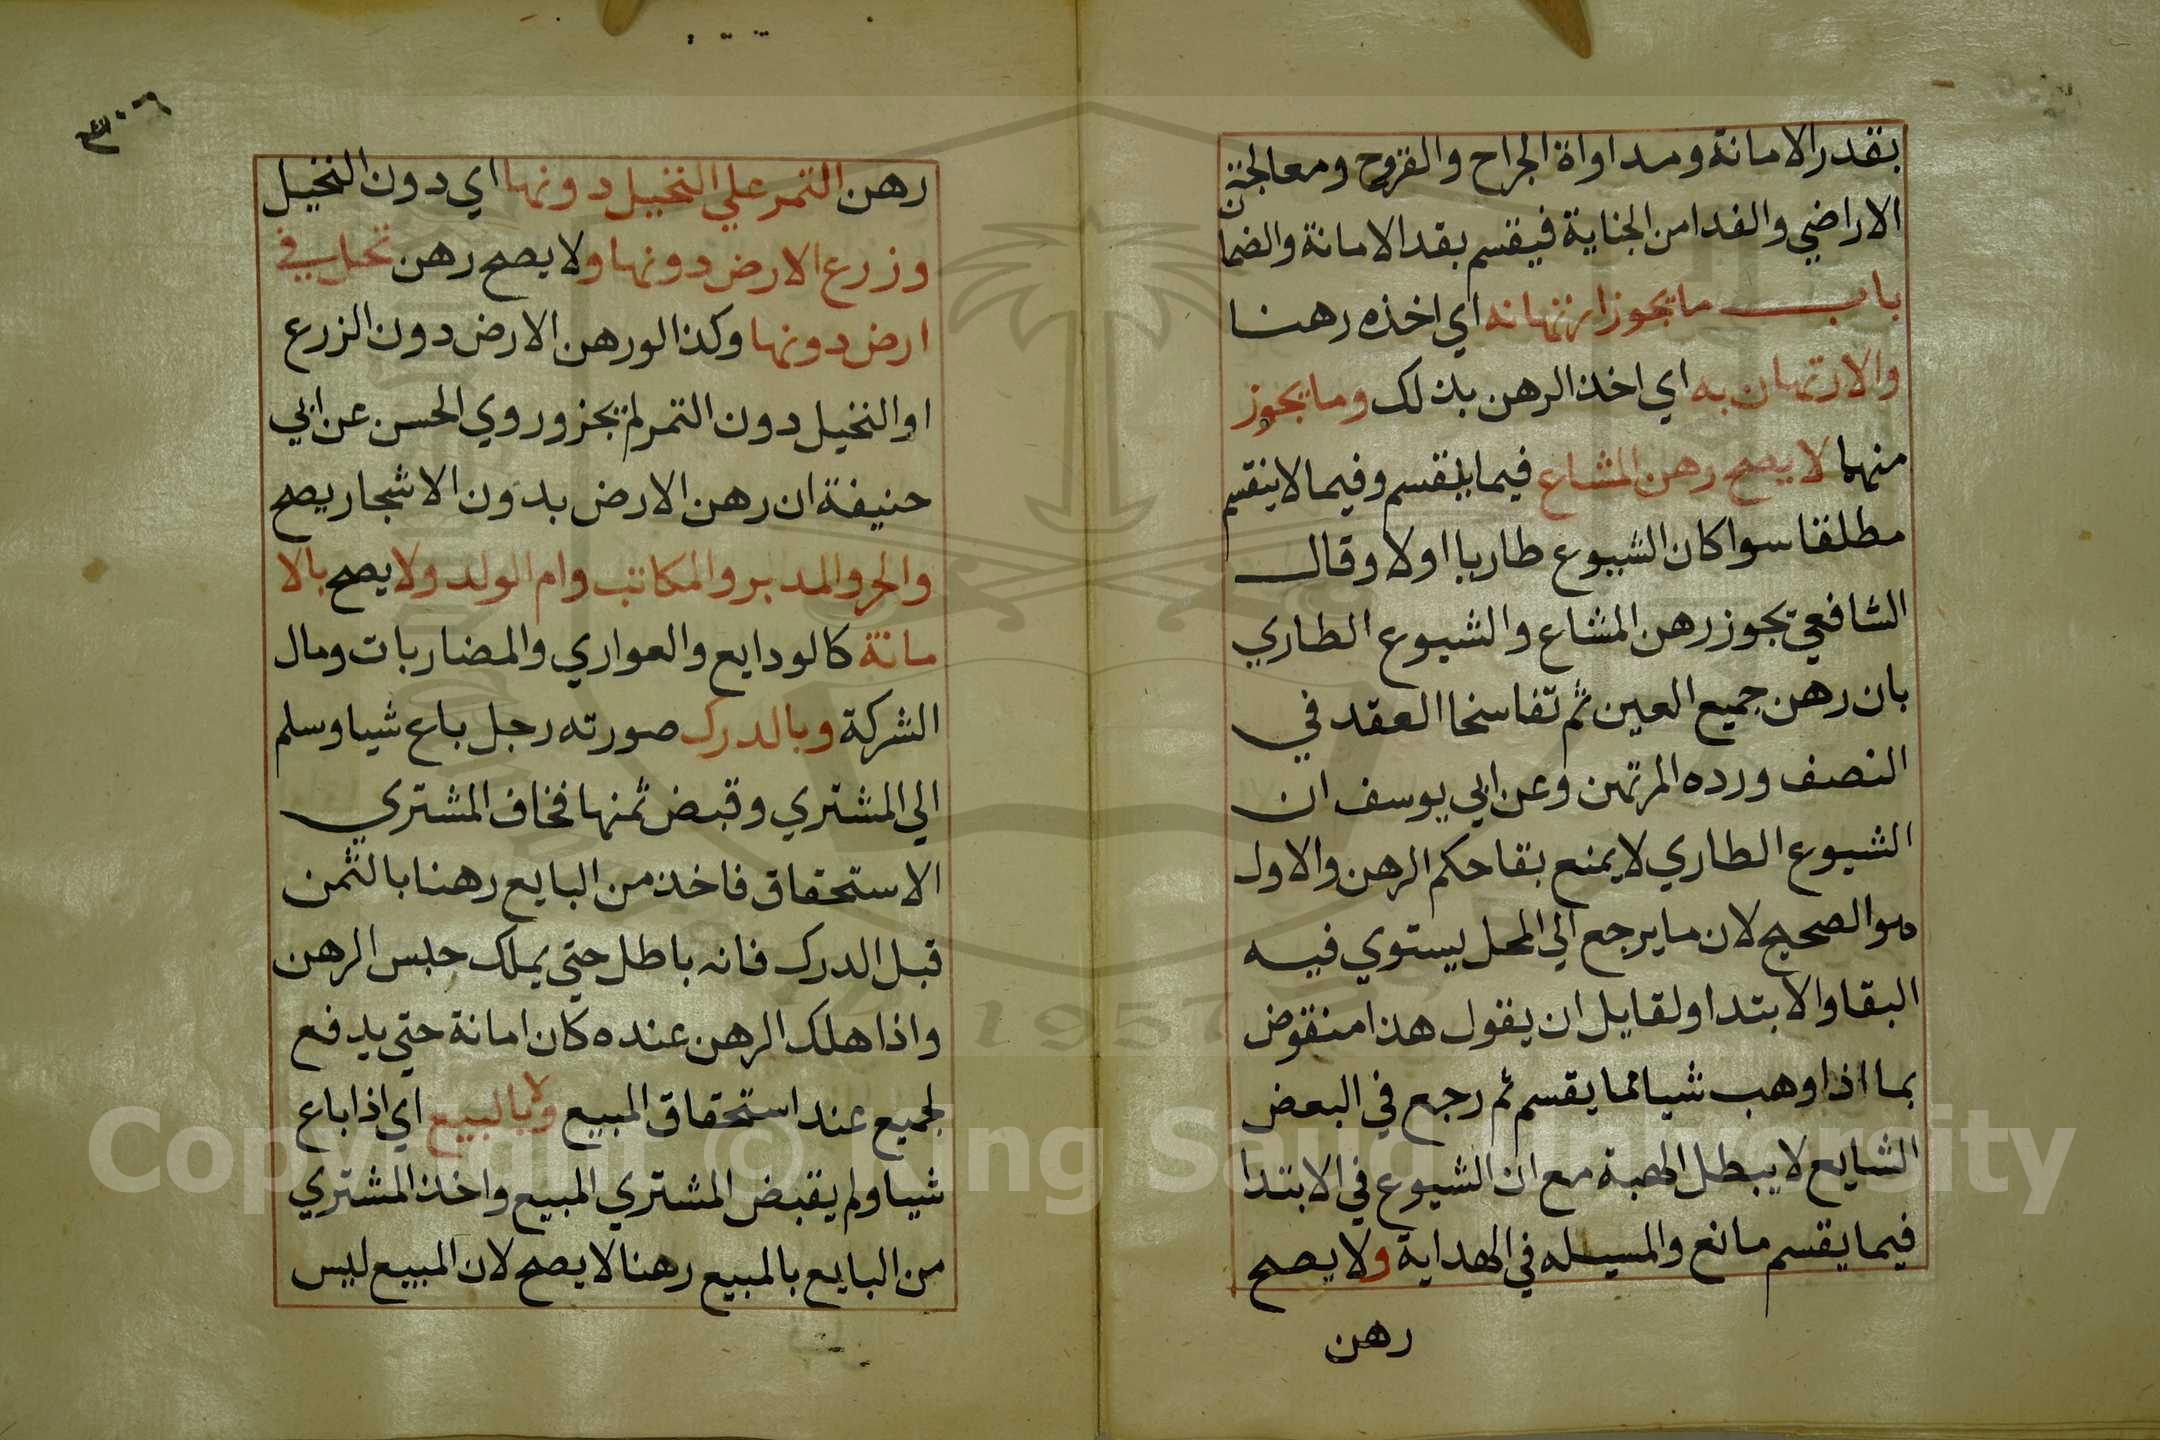 بقدر الامانة ومداواة الجراح والقروح ومعالجة
الاراضي والفدا من الجناية فيقسم بقد الامانة والضمان
باب ما يجوز ارتهانه اي اخذه رهنا
والارتهان به اي اخذ الرهن بذلك وما يجوز
منهما لا يصح رهن المشاع فيما ينقسم وفيما لا ينقسم
مطلقا سوا كان الشيوع طاريا اولا وقال
الشافعي يجوز رهن المشاع والشيوع الطاري
بان رهن جميع العين ثم تفاسخا العقد في
النصف ورده المرتهن وعن ابي يوسف ان
الشيوع الطاري لا يمنع بقا حكم الرهن والاول
هو الصحيح لان ما يرجع الي المحل يستوي فيه
البقا والابتدا ولقايل ان يقول هذا منقوض
بما اذا وهب شيا مما يقسم ثم رجع في البعض
الشايع لا يبطل الهبة مع ان الشيوع في الابتدا
فيما يقسم مانع والمسيله في الهداية ولا يصح
رهن
٣٠٦
رهن التمر علي النخيل دونها اي دون النخيل
وزرع الارض دونها ولا يصح رهن نخل في
ارض دونها وكذا لو رهن الارض دون الزرع
او النخيل دون التمر لم يجز وروي الحسن عن ابي
حنيفة ان رهن الارض بدون الاشجار يصح
والحر والمدبر والمكاتب وام الولد ولا يصح بالا
مانة كالودايع والعواري والمضاربات ومال
الشركة وبالدرك صورته رجل باع شيا وسلم
الي المشتري وقبض ثمنها فخاف المشتري
الاستحقاق فاخذ من البايع رهنا بالثمن
قبل الدرك فانه باطل حتي يملك حبس الرهن
واذا هلك الرهن عنده كان امانة حتي يدفع
لجميع عند استحقاق المبيع ولا بالبيع اي اذا باع
شيا ولم يقبض المشتري المبيع واخذ المشتري
من البايع بالمبيع رهنا لا يصح لان المبيع ليس
Copyright © King Saud University
1957